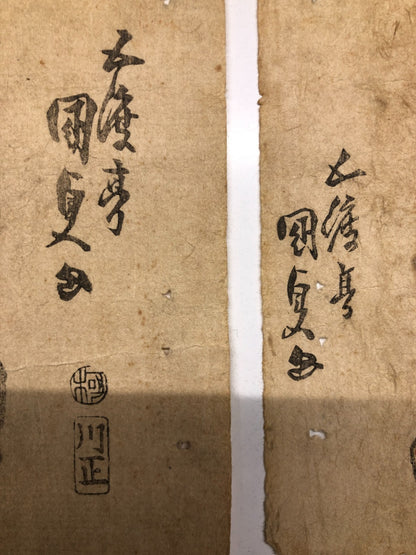 五渡亭
國貞画
極
川正
五渡亭
國貞画